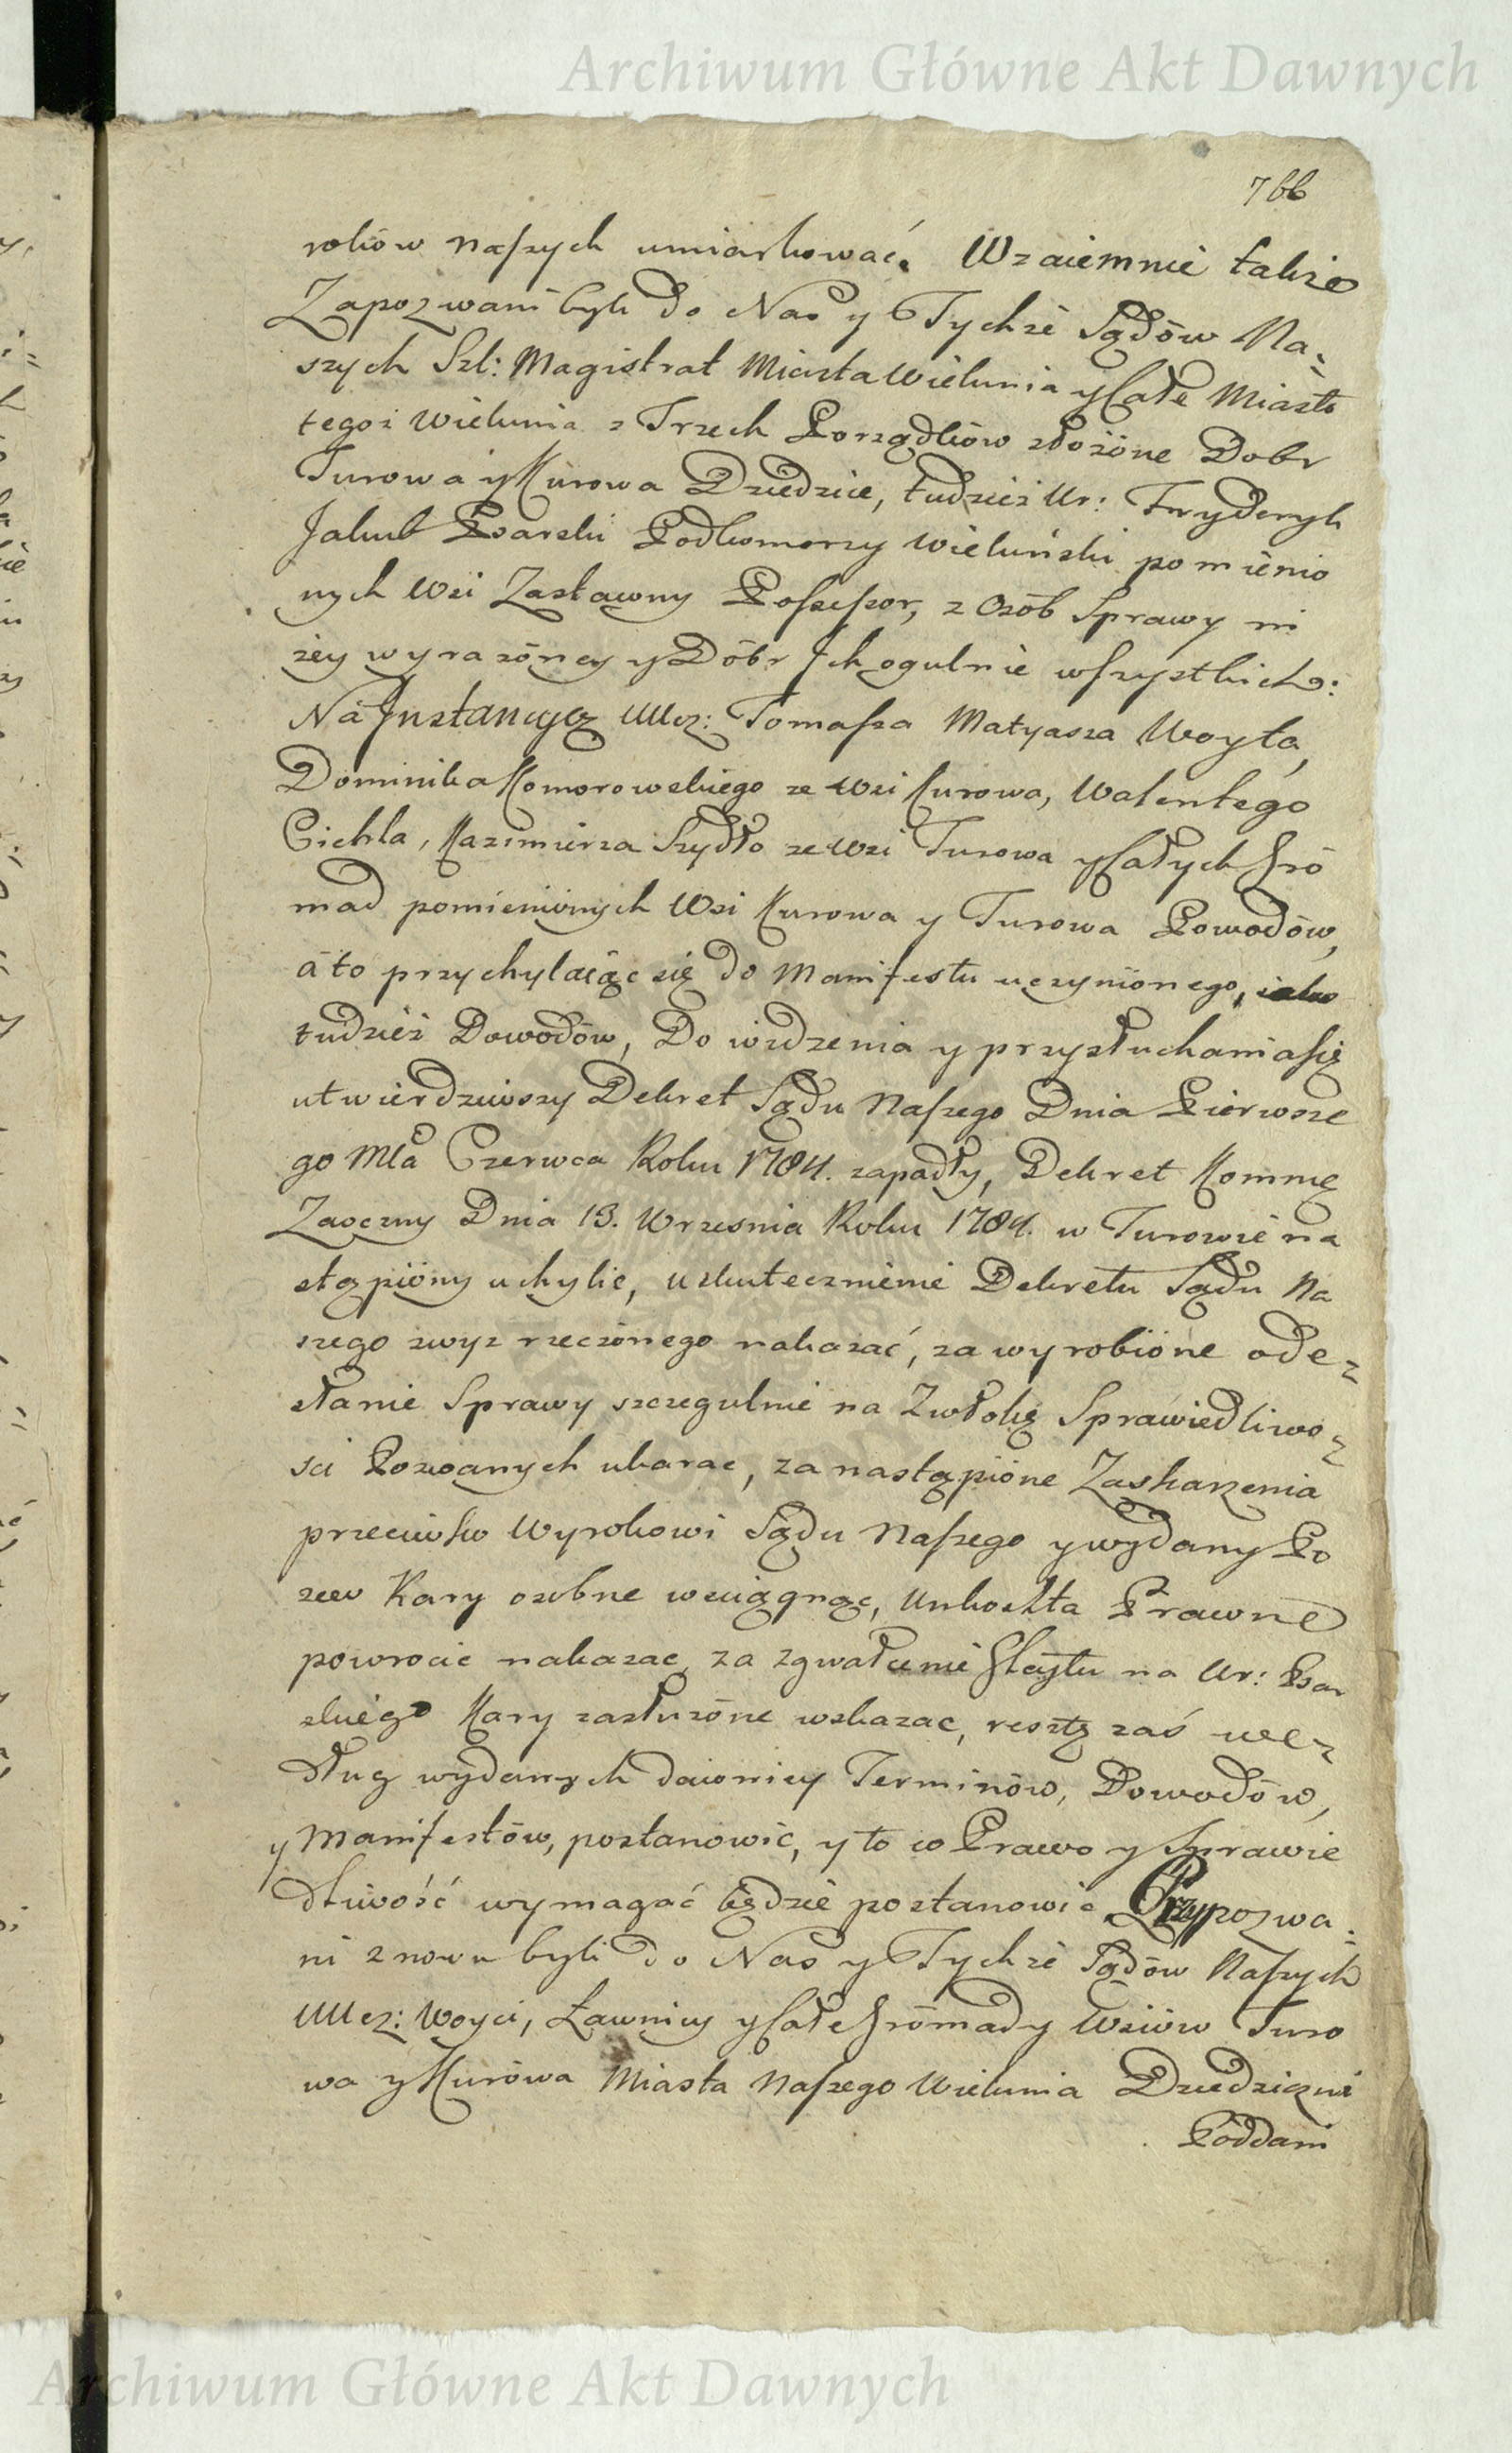 Archiwum Główne Akt Dawnych
766
roków naszych umiarkować. Wzaiemnie także
Zapozwani byli do Nas y Tychże Sądów Na-
szych Szl: Magistrat Miasta Wielunia y Całe Miasto
tegoż Wielunia z Trzech Porządków złożóne Dobr
Turowa y Kurowa Dziedzice, tudzież Ur: Fryderyk
Jakub Psarski Podkomorzy Wieluński pomienio
nych Wsi Zastawny Possessor, z Osób Sprawy ni
żey wyrażóney y Dóbr Jch ogulnie wszystkich:
Na Jnstancyą UUcz: Tomasza Matyasza Woyta,
Dominika Komorowskiego ze Wsi Kurowa, Walentego
Cichla, Kazimierza Szydło ze Wsi Turowa y Całych Gró
mad pomienionych Wsi Kurowa y Turowa Powodów,
a to przychylaiąc się do Manifestu uczynionego,
tudzież Dowodów, Do widzenia y przysłuchania się
utwierdziwszy Dekret Sądu Naszego Dnia Pierwsze
go Mca Czerwca Roku 1784. zapadły, Dekret Kommę
Zaoczny Dnia 13. Września Roku 1784. w Turowie na
stąpióny uchylić, uskutecznienie Dekretu Sądu Na
szego zwyż rzeczónego nakazać, za wyrobióne ode-
słanie Sprawy szczegulnie na Zwłokę Sprawiedliwo-
ści Pozwanych ukarac, za nastąpióne Zaskarżenia
przeciwko Wyrokowi Sądu Naszego y wydany Po
zew Kary osobne wciągnąc, Unkoszta Prawne
powrocic nakazac, za zgwałcenie Glejtu na Ur: Psar
skiego Kary zasłużóne wskazac, resztę zaś we-
dług wydanych dawniey Terminów, Dowodów,
y Manifestów, postanowic, y to co Prawo y Sprawie
dliwość wymagać będzie postanowic. Przypozwa-
ni znowu byli do Nas y Tychże Sądów Naszych
UUcz: Woyci, Ławnicy y Całe Grómady Wsiów Turo
wa y Kurówa Miasta Naszego Wielunia Dziedziczni
Póddani
Archiwum Główne Akt Dawnych